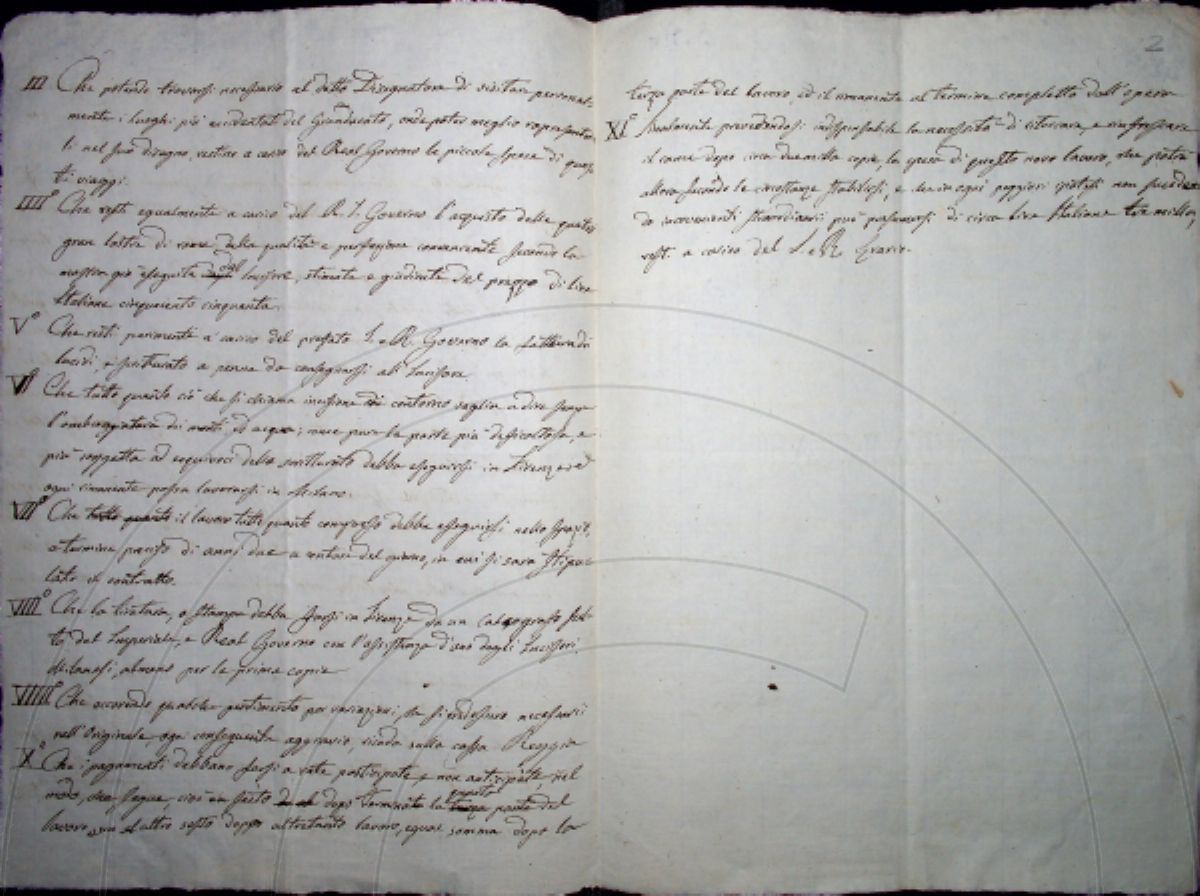 2
III Che potendo trovarsi necessario al detto Disegnatore di visitare personal-
mente i luoghi più accidentati del Granducato, onde poter meglio rapresentar-
li nel suo disegno, restino a carico del Real Governo le piccole spese di ques-
ti viaggi.
IIII° Che resti egualmente a carico del R. I. Governo l'acquisto delle quattro
gran lastre di rame della qualità e perfezione conveniente secondo la
mostra già eseguita dal Incisore, stimate e giudicate del prezzo di lire
Italiane cinquecento cinquanta.
V° Che resti parimente a carico del prefato I. e R. Governo la fattura di
lucidi, e scritturato a penna da consegnarsi all'Incisore.
VI° Che tutto quello ciò che si chiama incisione di contorno voglia a dire senza
l'ombreggiatura dei monti, ed acque; come pure la parte più difficoltosa, e
più soggetta ad equivoci dello scritturato debba eseguirsi in Firenze ed
ogni rimanente possa lavorarsi in Milano.
VII° Che tutto quanto il lavoro tutto quanto compreso debba eseguirsi nello spazio,
o termine preciso di anni due a contare del giorno, in cui si sarà stipu-
lato il contratto.
VIII° Che la tiratura, o stampa debba farsi in Firenze da un Calcografo
del Imperiale, e Real Governo con l'assistenza d'uno dagli Incisori
Milanesi, almeno per le prime copie
VIIII° Che accadendo qualche pentimento per variazioni, che si credessero necessarii
nell'Originale, ogni conseguente aggravio ricada sulla cassa Reggia
X° Che i pagamenti debbano farsi a rate posticipate e non anticipate, nel
modo, che segue, cioè un sesto dopo terminata la parte del
lavoro, un altro sesto doppo altretanto lavoro, egual somma dopo la
terza parte del lavoro, ed il rimanente al termine completto dell'opera
XI° Finalmente prevedendosi indispensabile la necessità di ritoccare, e rinfrescare
il rame dopo circa due milla copie, la spesa di questo novo lavoro, che potrà
allora secondo le circostanze stabilirsi, e che in ogni peggiori ipotesi non succeden-
do inconvenienti straordinarii può presumersi di circa lire Italiane tre milla,
resti a carico del I. e R. Erario.